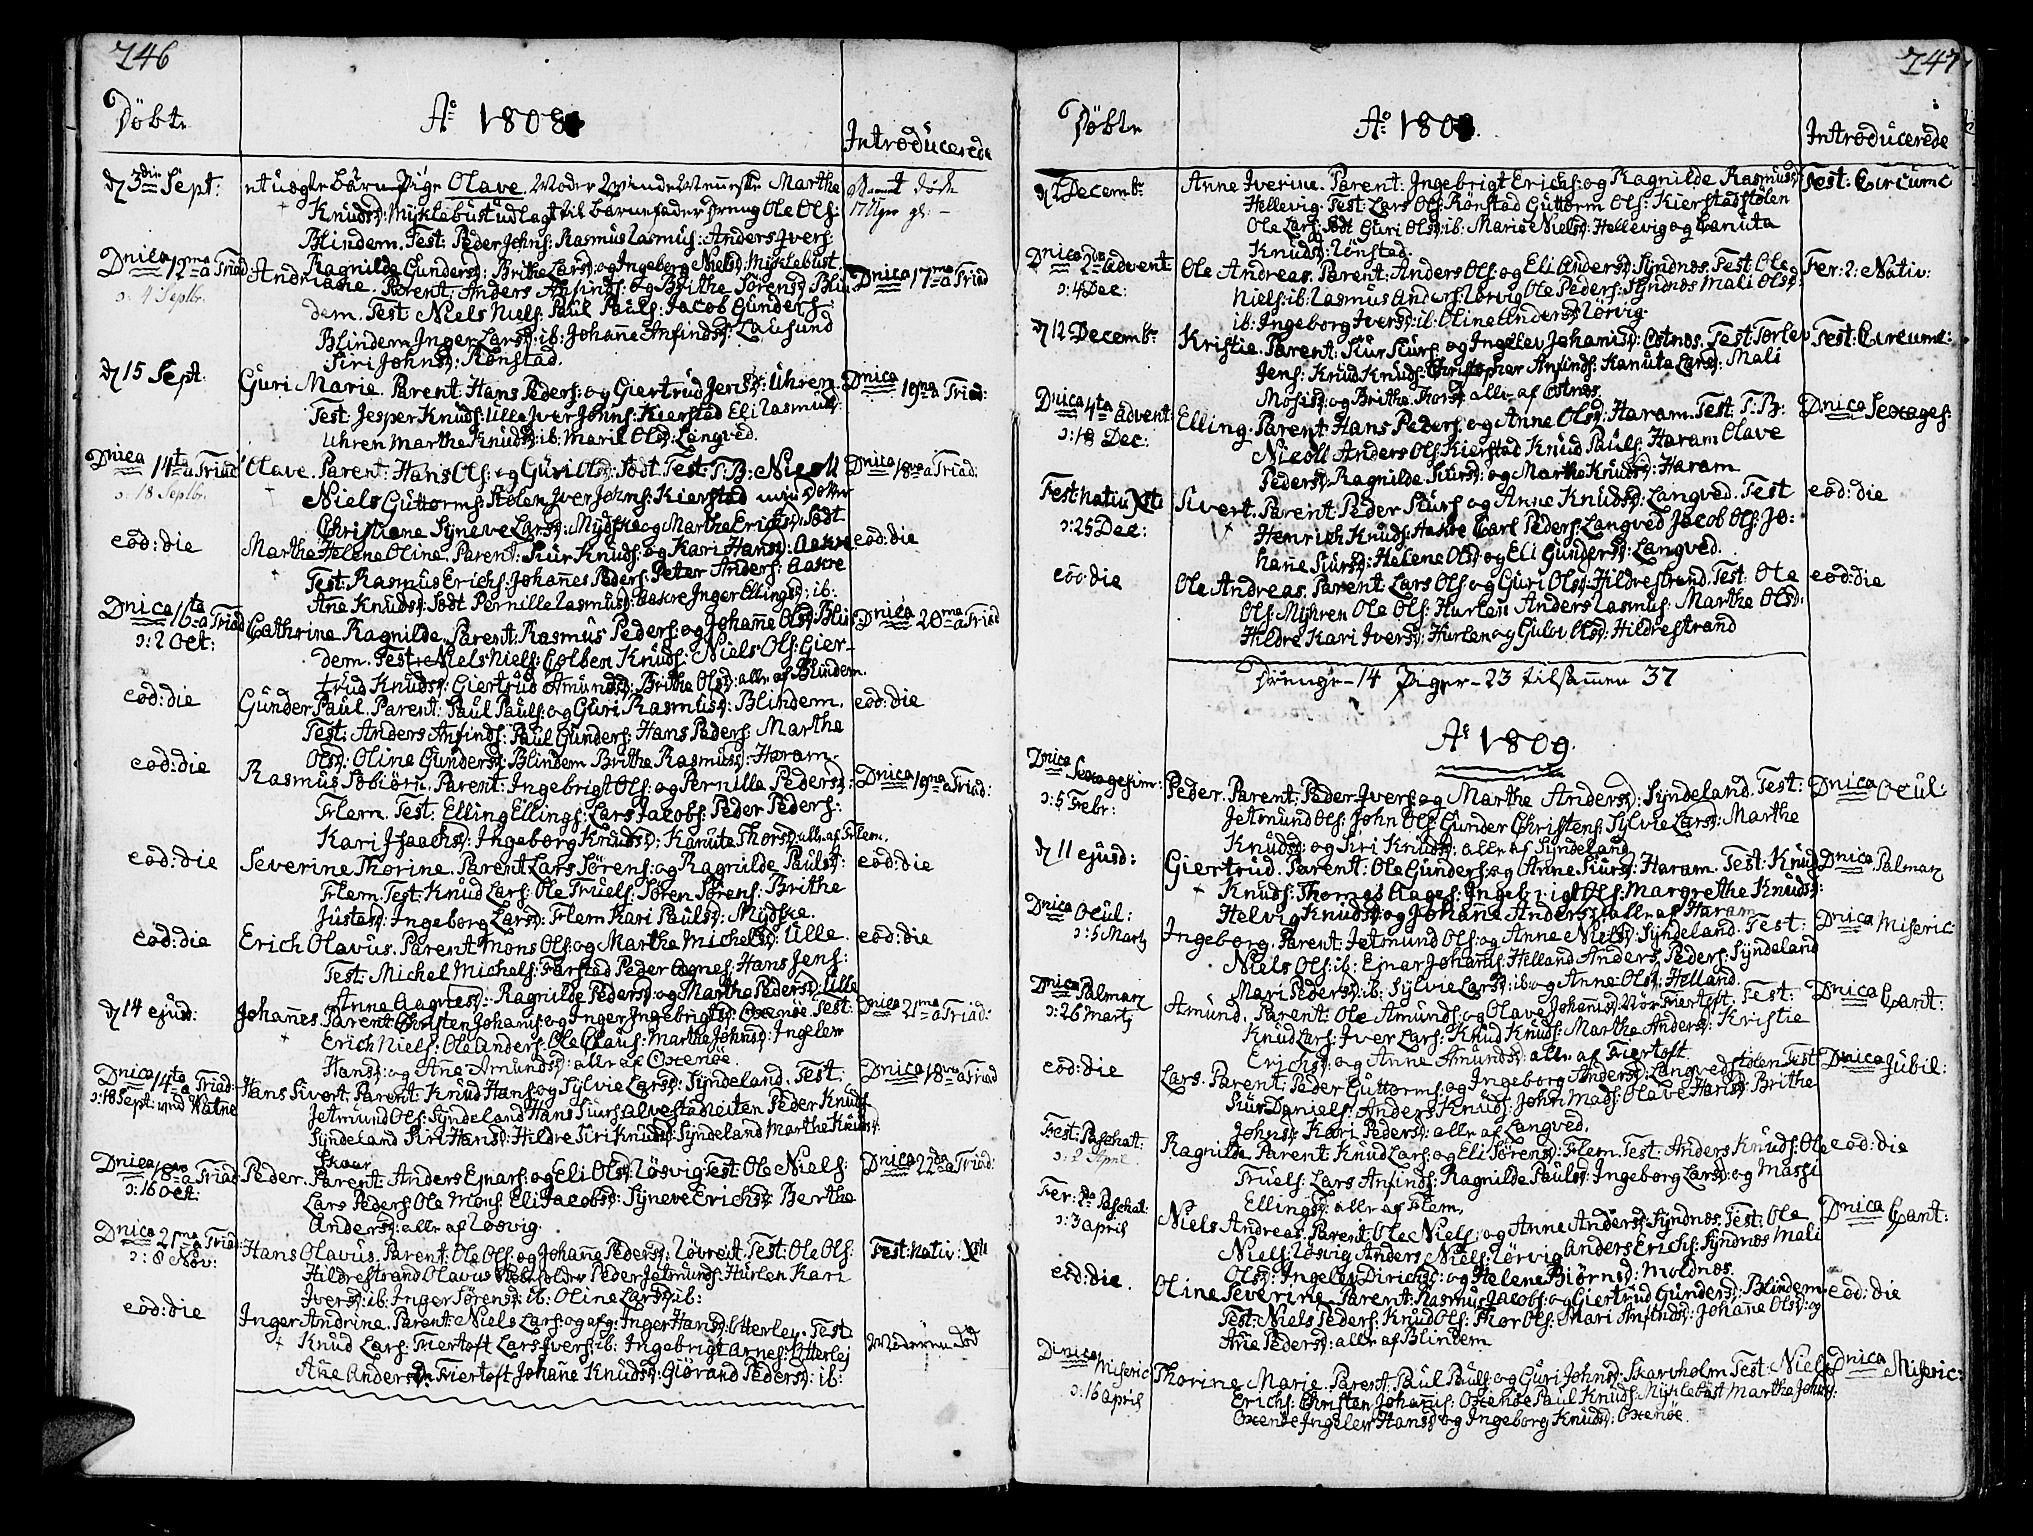 246
Döbte
Ao 1808
Introducerede
d 3die Sept: uægte barn Pige Olave. Moder Qvinde Mennesket Marthe
Knudsd: Myklebust udlagt til barnefader Dreng Ole Ols:
17 Ugr gl: -
Blindem. Test: Peder Johns: Rasmus Rasmus: Anders Ivers:
Ragnilde Gundersd: Brithe Larsd: og Ingeborg Nielsd: Myklebust.
Dnica 12ma a Triad Andriane. Parent: Anders Anfinds: og Brithe Sörensd: Blin- Dnica 17ma a Triad
ɔ: 4 Septbr: dem. Test Niels Niels: Paul Pauls: Jacob Gunders:
Blindem Inger Larsd: ib: Johanne Anfindsd: Lausund
Siri Johnsd: Rönstad.
d 15 Sept: Guri Marie. Parent: Hans Peders: og Giertrud Jensd: Uhren. Dnica 19na a Triad:
Test Jesper Knuds: Ulle Iver Johns: Kierstad Eli Rasmusd:
Uhren Marthe Knudsd: ib: Marie Olsd: Langved.
Dnica 14ta a Triad Olave. Parent: Hans Ols: og Guri Olsd: Södt. Test: S:B: Nicoll Dnica 18va a Triad:
ɔ: 18 Septbr. Niels Guttorms: Stölen Iver Johns: Kierstad min Dotter
Christiane Syneve Larsd: Mydske og Marthe Erichsd: Södt
eod: die Marthe Helene Oline. Parent: Siur Knuds: og Kari Hansd: Aakre. eod: die
Test: Rasmus Erichs: Johannes Peders: Peter Anders: Aakre
Ane Knudsd: Södt Pernille Rasmusd: Aakre Inger Ellingsd: ib:
Dnica 16ta a Triad Cathrine Ragnilde. Parent: Rasmus Peders: og Johanne Olsd: Blin- Dnica 20ma a Triad
ɔ: 2 Oct: dem. Test: Niels Niels: Colben Knuds: Niels Ols: Gier-
trud Knudsd: Giertrud Amundsd: Brithe Olsd: alle af Blindem.
eod: die Gunder Paul. Parent: Paul Pauls: og Guri Rasmusd: Blindem. eod: die
Test: Anders Anfinds: Paul Gunders: Hans Peders: Marthe
Olsd: Oline Gundersd: Blindem Brithe Rasmusd: Haram.
eod: die Rasmus Esbiörn. Parent: Ingebrigt Ols: og Pernille Pedersd: Dnica 19na a Triad:
Flem. Test: Elling Ellings: Lars Jacobs: Peder Peders:
Kari Isaachsd: Ingeborg Knudsd: Kanuta Thorsd: alle af Flem.
eod: die Severine Thorine. Parent: Lars Sörens: og Ragnilde Paulsd: eod: die
Flem. Test: Knud Lars: Ole Truels: Sören Sörens: Brithe
Justad: Ingeborg Larsd: Flem Kari Paulsd: Mydske.
eod: die Erich Olavus. Parent: Mons Ols: og Marthe Michelsd: Ulle. eod: die
Test: Michel Michels: Farstad Peder Agnes: Hans Jens:
Anne Aagnesd: Ragnilde Pedersd: og Marthe Pedersd: Ulle
d 14 ejusd: Johannes. Parent: Christen Johans: og Inger Ingebrigtsd: Oxenöe. Test: Dnica 21ma a Triad:
Erich Niels: Ole Anders: Ole Olaus: Marthe Johnsd: Ingelev
Hansd: og Ane Amundsd: alle af Oxenöe.
Dnica 14ta a Triad: Hans Sivert. Parent: Knud Hans: og Sylvie Larsd: Syndeland. Test: Dnica 18va a Triad
ɔ: 18 Sept: und Vatne Jetmund Ols: Syndeland Hans Siurs: Alvestadleiten Peder Knuds
Syndeland Siri Hansd: Hildre Siri Knudsd: Syndeland Marthe Knudsd:
Skaar
Dnica 18va a Triad Peder. Parent: Anders Ejnars: og Eli Olsd: Lösvig. Test: Ole Niels: Dnica 22da a Triad:
ɔ: 16 Oct: Lars Peders: Ole Mons: Eli Jacobsd: Syneve Erichsd: Berthe
Andersd: alle af Lösvig.
Dnica 21ma a Triad: Hans Olavus. Parent: Ole Ols: og Johanne Pedersd: Lövreit. Test: Ole Ols: Fest: Nativ: Xsti
ɔ: 8 Nov: Hildrestrand Olavus Peder Jetmunds: Hurlen Kari
Iversd: ib: Inger Sörensd: ib: Oline Larsd: ib:
eod: die Inger Andrine. Parent: Niels Lars: og afg: Inger Hansd: Otterley. Test: Moderen död
Knud Lars: Fiertoft Lars Ivers: ib: Ingebrigt Arnes: Otterlej
Ane Andersd: Fiertoft Johanne Knudsd: Giörand Pedersd: ib:
247
Döbte
Ao 1808.
Introducerede
d 2 Decembr. Anne Iverine. Parent: Ingebrigt Erichs: og Ragnilde Rasmusd: Fest: Circumc
Hellevig. Test: Lars Ols: Rönstad Guttorm Ols: Kierstadstölen
Ole Lars: Södt Guri Olsd: ib: Marie Nielsd: Hellevig og Canuta
Knudsd: Rönstad.
Dnica 2da advent Ole Andreas. Parent: Anders Ols: og Eli Andersd: Syndnæs. Test: Ole Fer: 2: Nativ:
ɔ: 4 Dec: Niels: ib: Rasmus Anders: Lörvig Ole Peders: Syndnæs Mali Olsd:
ib: Ingeborg Iversd: ib: Oline Andersd: Lörvig.
d 12 Decembr Kristie. Parent: Siur Siurs: og Ingelev Johansd: Ostnæs. Test: Torlev Fest: Circumc:
Jens: Knud Knuds: Christopher Anfinds: Kanuta Larsd: Mali
Mosisd: og Brithe Thorsd: alle af Ostnæs.
Dnica 4ta advent Elling. Parent: Hans Peders: og Anne Olsd: Haram. Test: S:B: Dnica Sexages:
ɔ: 18 Dec: Nicoll Anders Ols: Kierstad Knud Pauls: Haram Olave
Pedersd: Ragnilde Siursd: og Marthe Knudsd: Haram
Fest: Nativ: Xsti Sivert. Parent: Peder Siurs: og Anne Knudsd: Langved. Test eod: die
ɔ: 25 Dec: Henrich Knuds: Aakre Carl Peders: Langved Jacob Ols: Jo-
hane Siursd: Helene Olsd: og Eli Gundersd: Langved.
eod: die Ole Andreas. Parent: Lars Ols: og Guri Olsd: Hildrestrand. Test: Ole eod: die
Ols: Myhren Ole Ols: Hurlen Anders Rasmus: Marthe Olsd:
Hildre Kari Iversd: Hurlen og Gulov Olsd: Hildrestrand
Drenge - 14 Piger - 23 tilsammen 37
Ao 1809.
Dnica Sexagesim: Peder. Parent: Peder Ivers: og Marthe Andersd: Syndeland. Test: Dnica Ocul:
ɔ: 5 Febr: Jetmund Ols: John Ols: Gunder Christens: Sylvie Larsd: Marthe
Knudsd: og Siri Knudsd: alle af Syndeland
d 11 ejusd: Giertrud. Parent: Ole Gunders: og Anne Siursd: Haram. Test: Knud Dnica Palmar
Knuds: Thomes Aages: Ingebrigt Ols: Margrethe Knudsd:
Helvig Knudsd: og Johanne Andersd: alle af Haram
Dnica Ocul: Ingeborg. Parent: Jetmund Ols: og Anne Nielsd: Syndeland. Test: Dnica Miseric
ɔ: 5 Martj Niels Ols: ib: Ejnar Johans: Helland Anders Peders: Syndeland
Mari Pedersd: ib: Sylvie Larsd: ib: og Anne Olsd: Helland.
Dnica Palmar Amund. Parent: Ole Amunds: og Olave Johansd: Nör Fiertoft. Test: Dnica Cant:
ɔ: 26 Martj Knud Lars: Iver Lars: Knud Knuds: Marthe Andersd: Kristie
Erichsd: og Anne Amundsd: alle af Fiertoft.
eod: die Lars. Parent: Peder Guttorms: og Ingeborg Andersd: Langvedstölen. Test Dnica Jubil:
Siur Daniels: Anders Knuds: John Mads: Olave Hansd: Brithe
Johnsd: Kari Pedersd: alle af Langved.
Fest: Paschat: Ragnilde. Parent: Knud Lars: og Eli Sörensd: Flem. Test: Anders Knuds: Ole eod: die
ɔ: 2 April Truels: Lars Anfinds: Ragnilde Paulsd: Ingeborg Larsd: og Massi
Ellingsd: alle af Flem.
Fer: 2da Paschat: Niels Andreas. Parent: Ole Niels: og Anne Andersd: Syndnæs. Test: Ole Dnica Cant:
ɔ: 3 april Niels: Lösvig Anders Niels: Lörvig Anders Erichs: Syndnæs Mali
Olsd: Ingelev Dirichsd: og Helene Biörnsd: Moldnæs.
eod: die. Oline Severine. Parent: Rasmus Jacobs: og Giertrud Gundersd: Blindem. eod: die
Test: Niels Peders: Knud Ols: Thor Ols: Mari Anfindsd: Johanne Olsd: og
Ane Pedersd: alle af Blindem.
Dnica Miseric: Thorine Marie. Parent: Paul Pauls: og Guri Johnsd: Skarvholm. Test: Niels Dnica Miseric:
ɔ: 16 april Erichs: Christen Johans: Oxenöe Paul Knuds: Myklebust Marthe Johnsd:
Oxenöe Ingelev Hansd: og Ingeborg Knudsd: Oxenöe.